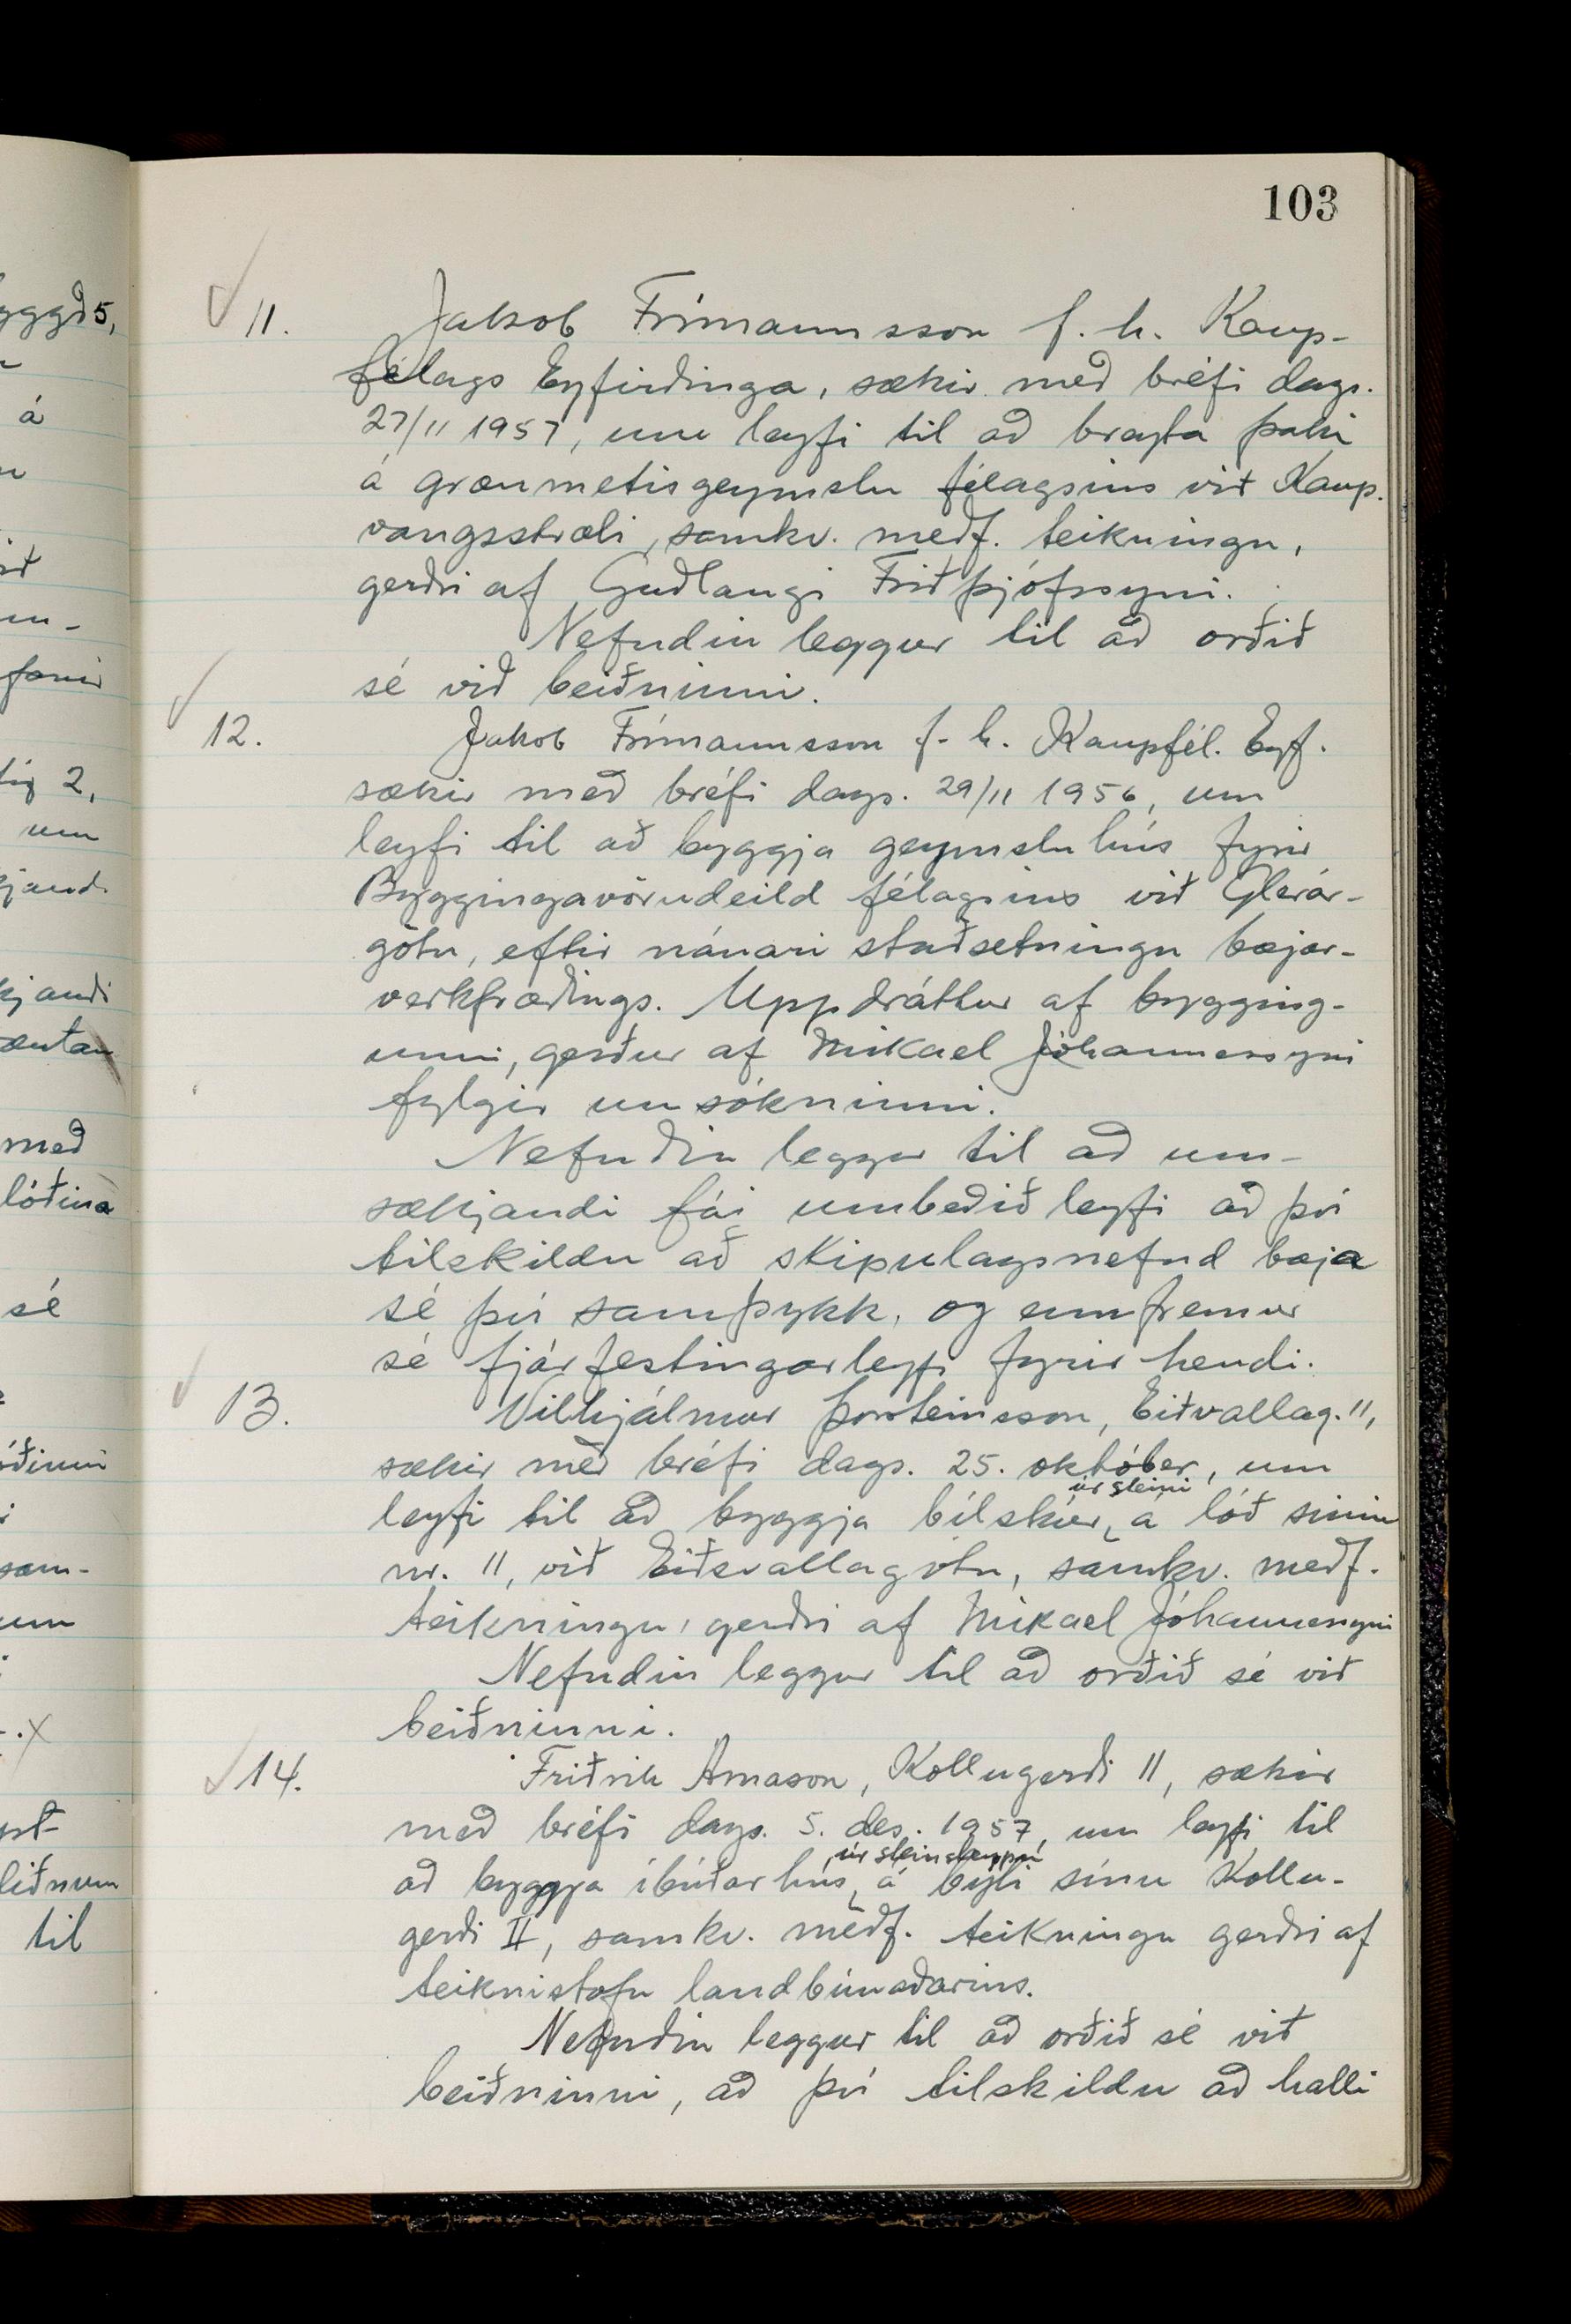 103
11. Jakob Frímannsson f. h. Kaup-
félags Eyfirðinga, sækir með bréfi dags.
27/11 1957, um leyfi til að breyta þaki
á grænmetisgeymslu félagsins við Kaup-
vangsstræti, samkv. meðf. teikningu,
gerðri af Guðlaugi Friðþjófssyni.
Nefndin leggur til að orðið
sé við beiðninni.
12. Jakob Frímannsson f. h. Kaupfél. Eyf.
sækir með bréfi dags. 29/11 1956, um
leyfi til að byggja geymsluhús fyrir
Byggingavörudeild félagsins við Glerár-
götu, eftir nánari staðsetningu bæjar-
verkfræðings. Uppdráttur af bygging-
unni, gerður af Mikael Jóhannessyni
fylgir umsókninni.
Nefndin leggur til að um-
sækjandi fái umbeðið leyfi að því
tilskildu að skipulagsnefnd bæja
sé því samþykk, og ennfremur
sé fjárfestingarleyfi fyrir hendi.
13. Vilhjálmur Þorsteinsson, Eiðvallag. 11,
sækir með bréfi dags. 25. október, um
úr steini
leyfi til að byggja bílskúr, á lóð sinni
nr. 11, við Eiðsvallagötu, samkv. meðf.
teikningu, gerðri af Mikael Jóhannessyni
Nefndin leggur til að orðið sé við
beiðninni.
14. Friðrik Árnason, Kollugerði II, sækir
með bréfi dags. 5. des. 1957, um leyfi til
úr steinsteypu
að byggja íbúðarhús, á býli sínu Kollu-
gerði II, samkv. meðf. teikningu gerðri af
teiknistofu landbúnaðarins.
Nefndin leggur til að orðið sé við
beiðninni, að því tilskildu að halli